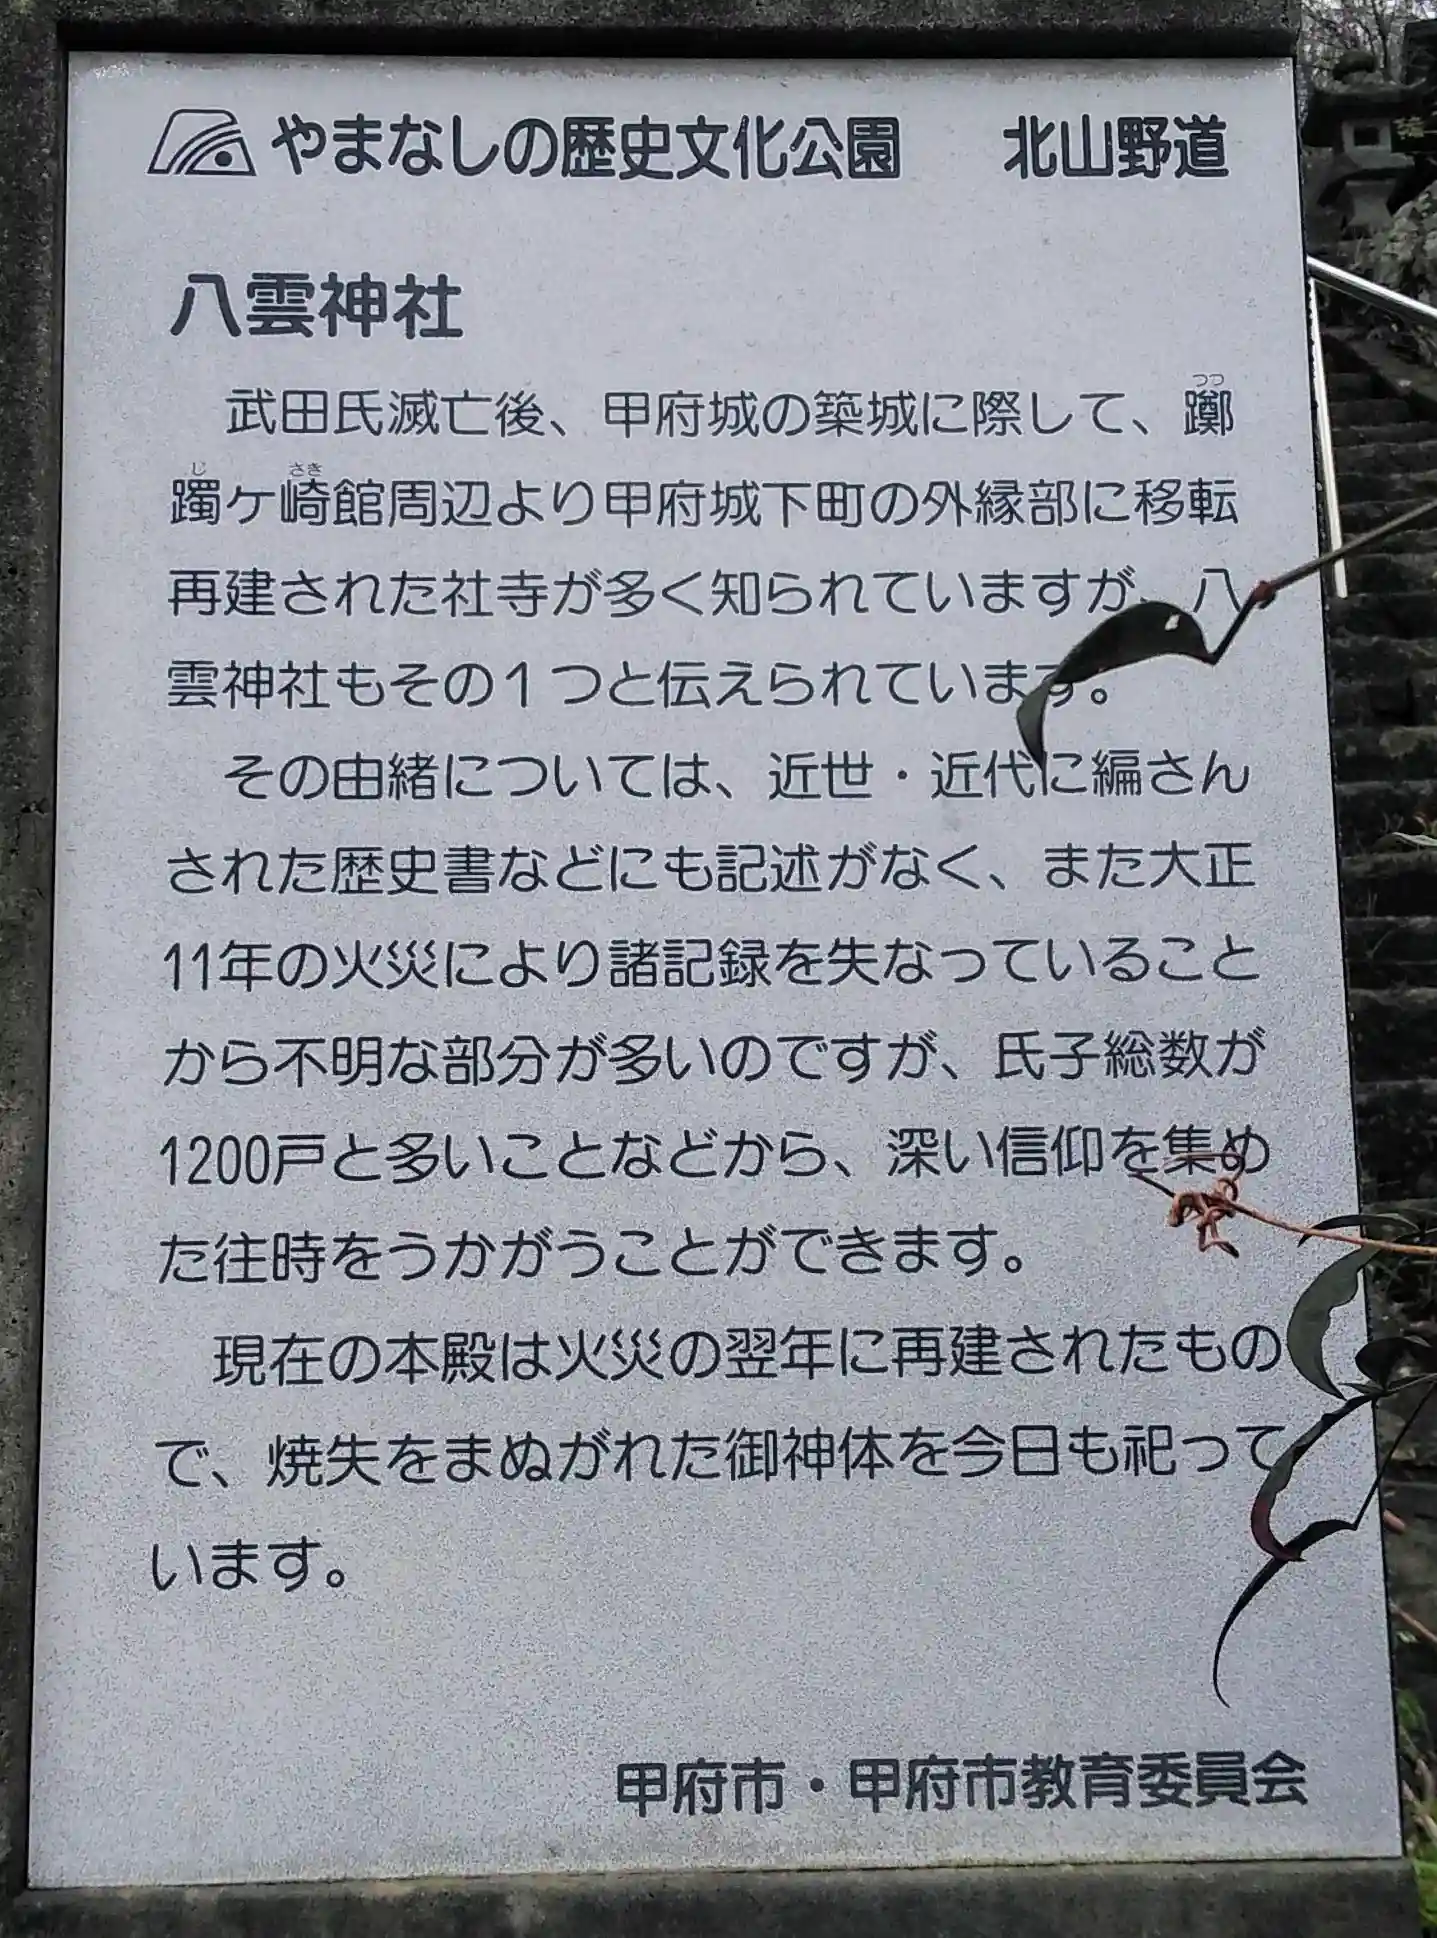 やまなしの歴史文化公園　北山野道
八雲神社
武田氏滅亡後、甲府城の築城に際して、躑
つつ
躅ケ崎館周辺より甲府城下町の外縁部に移転
じ　さき
再建された社寺が多く知られていますが、八
雲神社もその１つと伝えられています。
その由緒については、近世・近代に編さん
された歴史書などにも記述がなく、また大正
11年の火災により諸記録を失なっていること
から不明な部分が多いのですが、氏子総数が
1200戸と多いことなどから、深い信仰を集め
た往時をうかがうことができます。
現在の本殿は火災の翌年に再建されたもの
で、焼失をまぬがれた御神体を今日も祀って
います。
甲府市・甲府市教育委員会